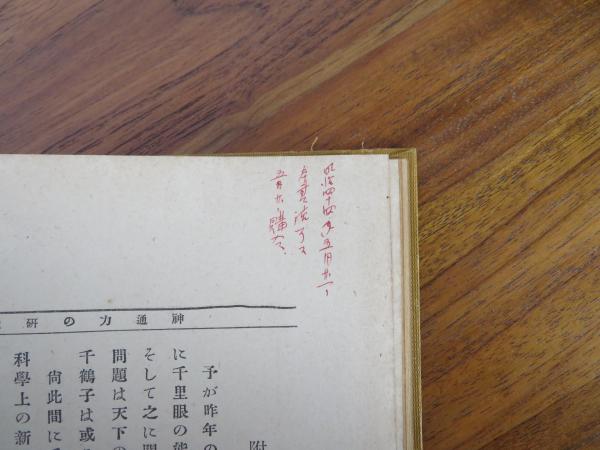 明治四十四年五月廿一日
五月廿日購入
神通力の研
附
予が昨年の
に千里眼の能
そして之に關
問題は天下の
千鶴子は或
尙此間に
科學上の新